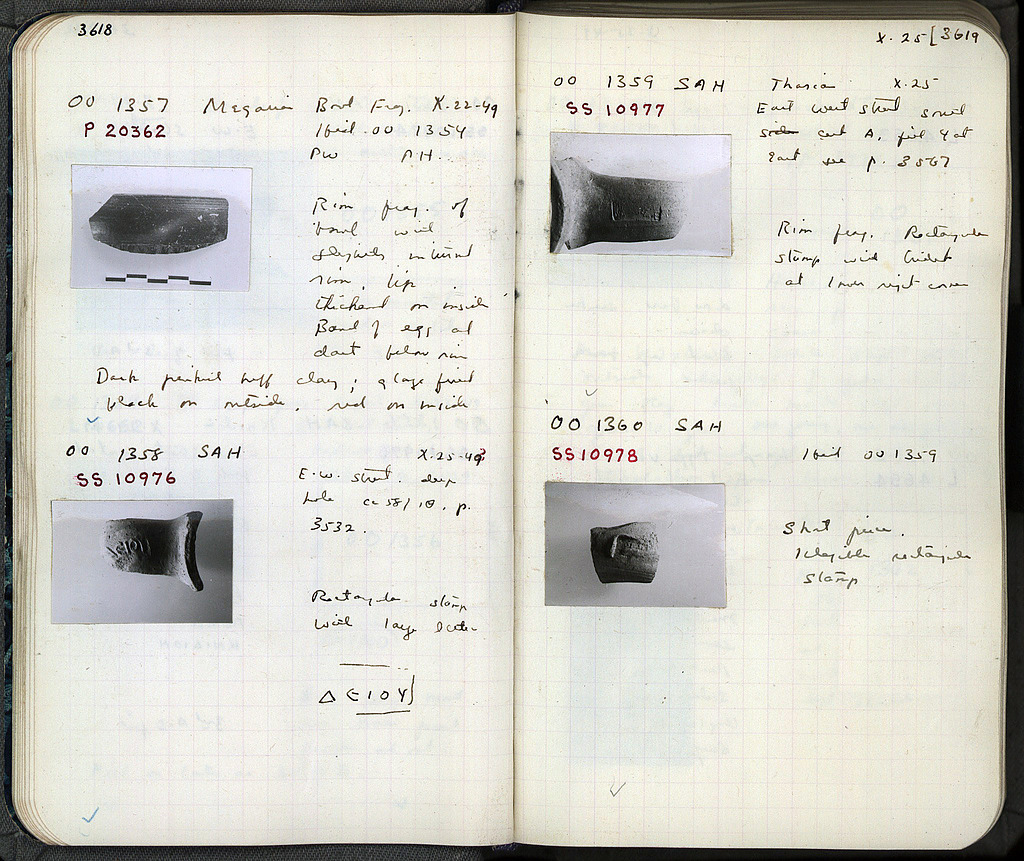 3618
OO 1357 Megarian Bowl Frag. X-22-49
P 20362
Ibid. OO 1354
PW PH.
Rim frag. of
bowl with
slightly
rim, lip
thickened on inside
Band of egg and
dart below rim
Dark buff clay; glaze fired
black on outside, red on inside
OO 1358 SAH X-25-49
SS 10976
E-W. street. deep
hole ca 58/ΙΘ, p.
3532.
Rectangular stamp
with large letters
ΔΕΙΟΥ
X-25 [3619
OO 1359 SAH Thasian X-25
SS 10977
East west street south
side cut A, fill 4 at
East see p. 3567
Rim frag. Rectangular
stamp with trident
at lower right corner
OO 1360 SAH
SS 10978
Ibid OO 1359
Short piece.
Illegible rectangular
stamp